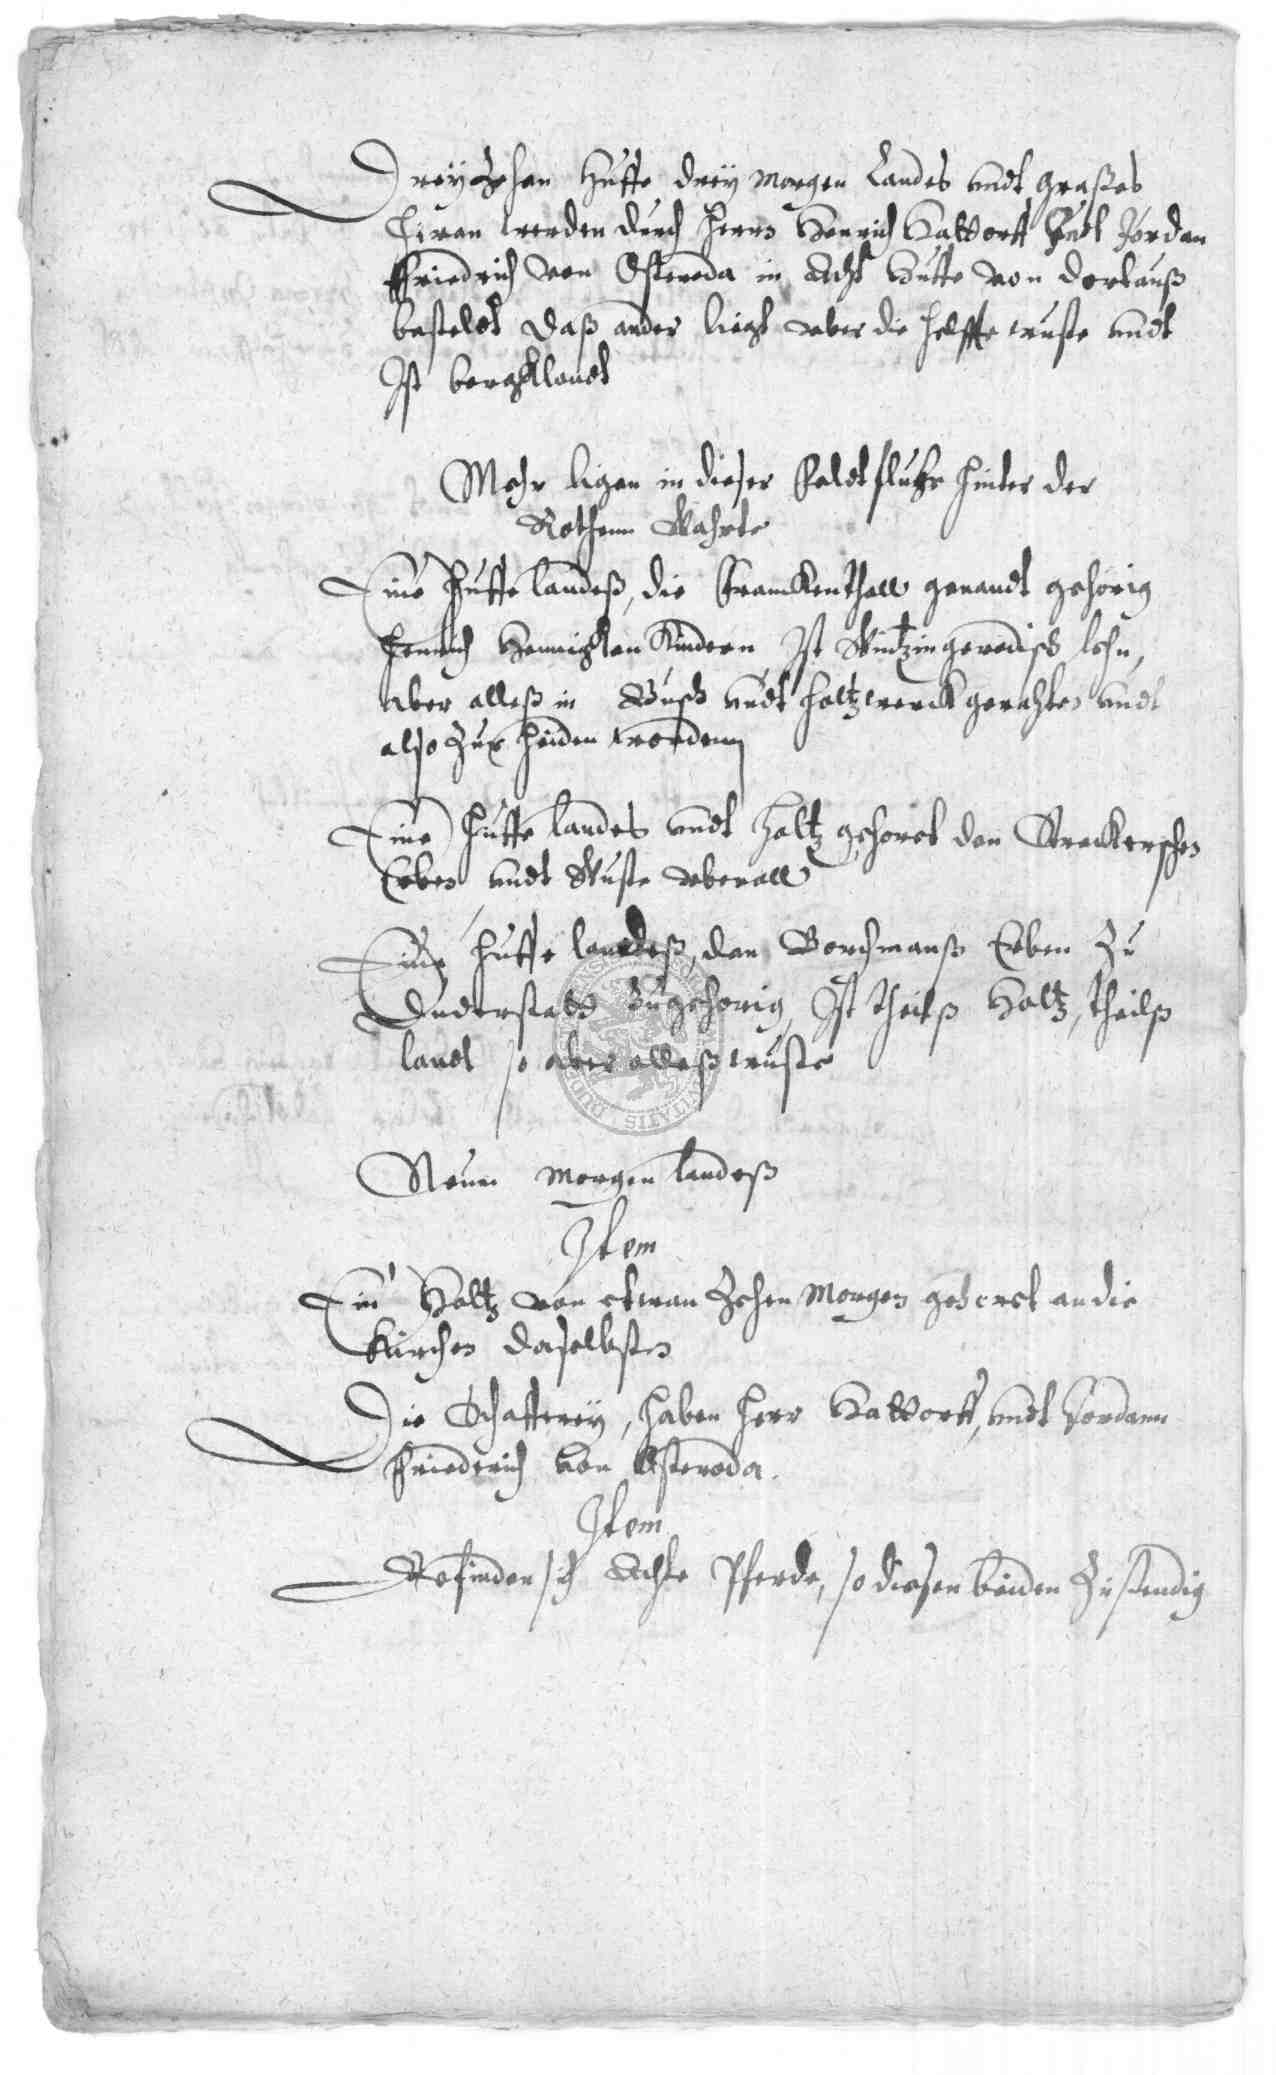 Dreÿzehen Huffe dreÿ Morgen Landes vndt graßes
hiran werden durch Herrn Henrich Hattorff vndt Jordan
Friedrich von Osteroda in Acht Huffe von dorbauß
bestelet daß ander liegt aber die helffte wuste vndt
Ist bergklandt
Mehr ligen in dieser Feldtfluhr hinter der
Rothenn Wahrte
Eine Huffe landeß, die Franckenthall genandt gehörig
Henrich Hennigken Kindern Ist Wintzingerodisch lehn,
aber alleß in Busch vndt holtzwerck gerahten vndt
also zur heiden wordenn
Eine Huffe landes vndt holtz gehoret den Streckerschen
Erben vndt Wuste vberall
Eine Huffe landeß, den Borchmanß Erben zu
Duderstadt Zugehorig, Ist theilß Holtz, theilß
landt so aber alleß wuste
Neun Morgen landeß
Item
Ein Holtz von etwan Zehen Morgen gehoret an die
Kirchen daselbsten
Die Schafferey, haben Herr Hattorff, vndt Jordann
Friederich von Osteroda.
Item
Befinden sich Achte Pferde, so diesen beiden Zustendig
SIGILLUM CIVITATIS DUD